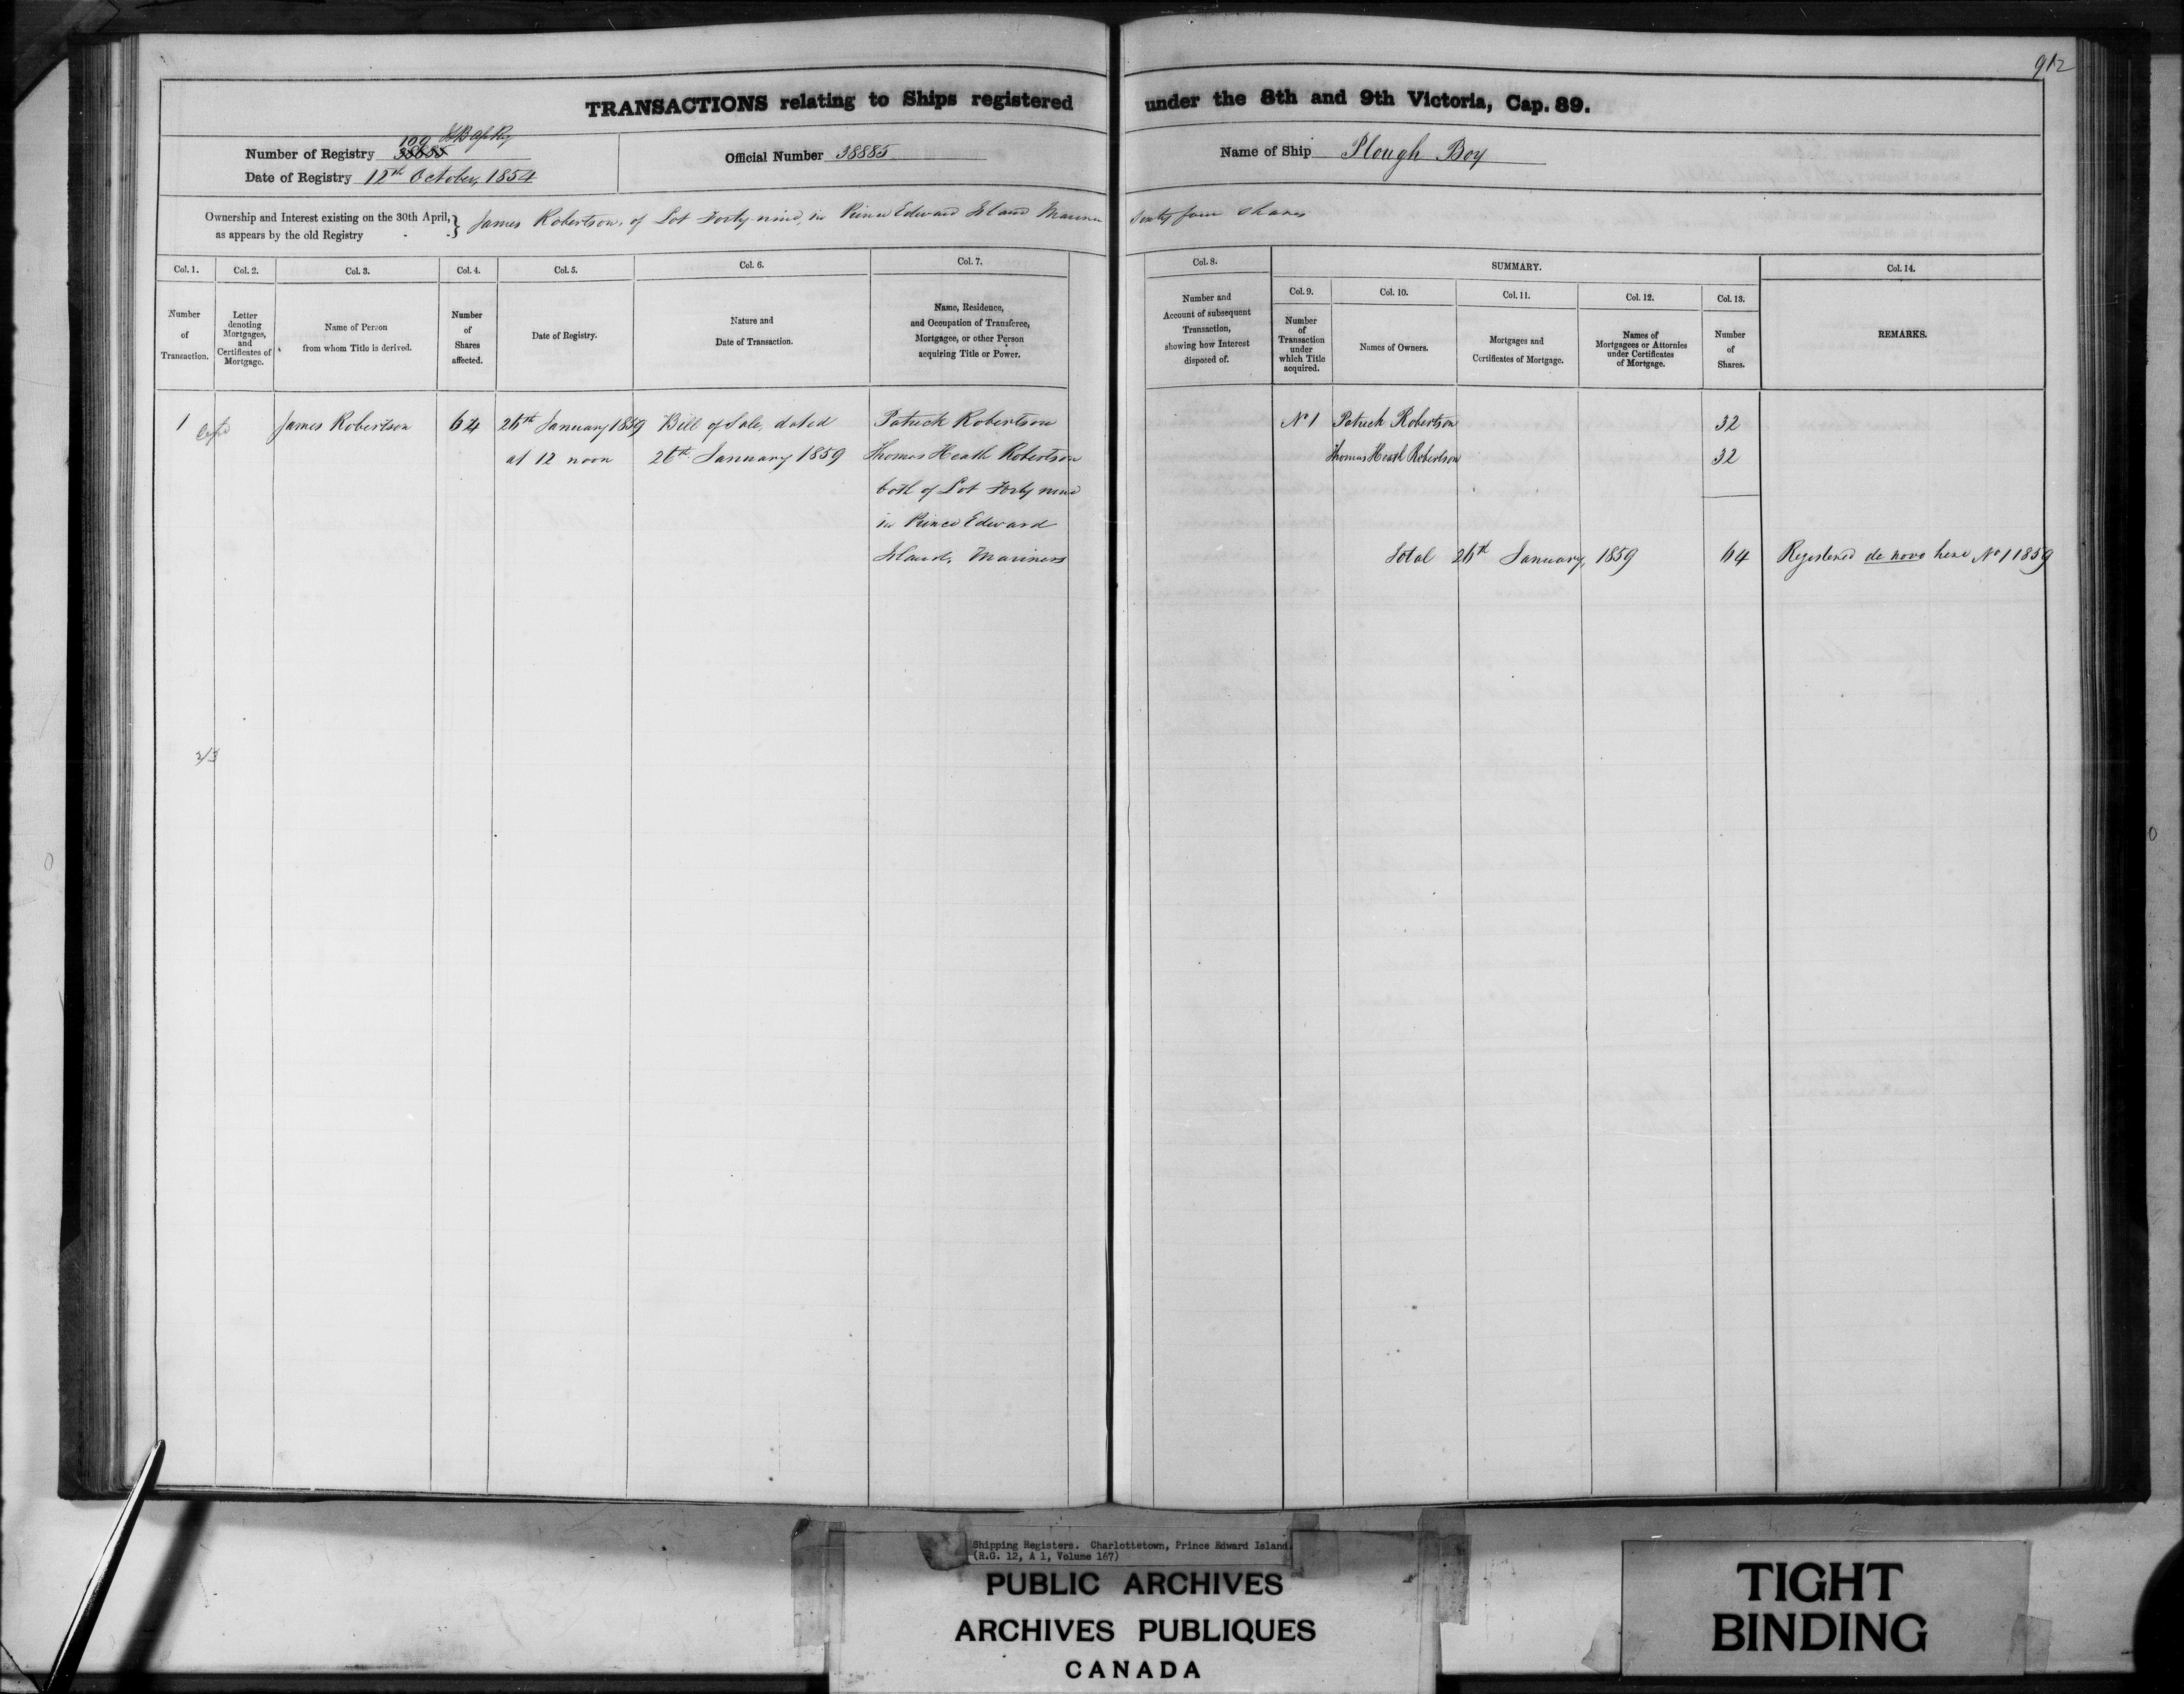 912
TRANSACTIONS relating to Ships registered under the 8th and 9th Victoria, Cap. 89.
109
Number of Registry 38885
Date of Registry 12th October, 1854
Official Number 38885
Name of Ship Plough Boy
Ownership and Interest existing on the 30th April, as appears by the old Registry } James Robertson, of Lot Forty nine, in Prince Edward Island Mariner Sixty four Shares
Col. 1.
Number of Transaction.
Col. 2.
Letter denoting Mortgages, and Certificates of Mortgage.
Col. 3.
Name of Person from whom Title is derived.
Col. 4.
Number of Shares affected.
Col. 5.
Date of Registry.
Col. 6.
Nature and Date of Transaction.
Col. 7.
Name, Residence, and Occupation of Transferee, Mortgagee, or other Person acquiring Title or Power.
Col. 8.
Number and Account of subsequent Transaction, showing how Interest disposed of.
SUMMARY.
Col. 9.
Number of Transaction under which Title acquired.
Col. 10.
Names of Owners.
Col. 11.
Mortgages and Certificates of Mortgage.
Col. 12.
Names of Mortgagees or Attornies under Certificates of Mortgage.
Col. 13.
Number of Shares.
Col. 14.
REMARKS.
1 James Robertson 64 26th January 1859 Bill of Sale, dated Patrick Robertson No 1 Patrick Robertson 32
at 12 noon 26th January 1859 Thomas Heath Robertson Thomas Heath Robertson 32
both of Lot Forty nine
in Prince Edward
Island, Mariners Total 26th January, 1859 64 Registered de novo here No 1 1859
2/3
Shipping Registers. Charlottetown, Prince Edward Island.
(R.G. 12, A 1, Volume 167)
PUBLIC ARCHIVES
ARCHIVES PUBLIQUES
CANADA
TIGHT
BINDING